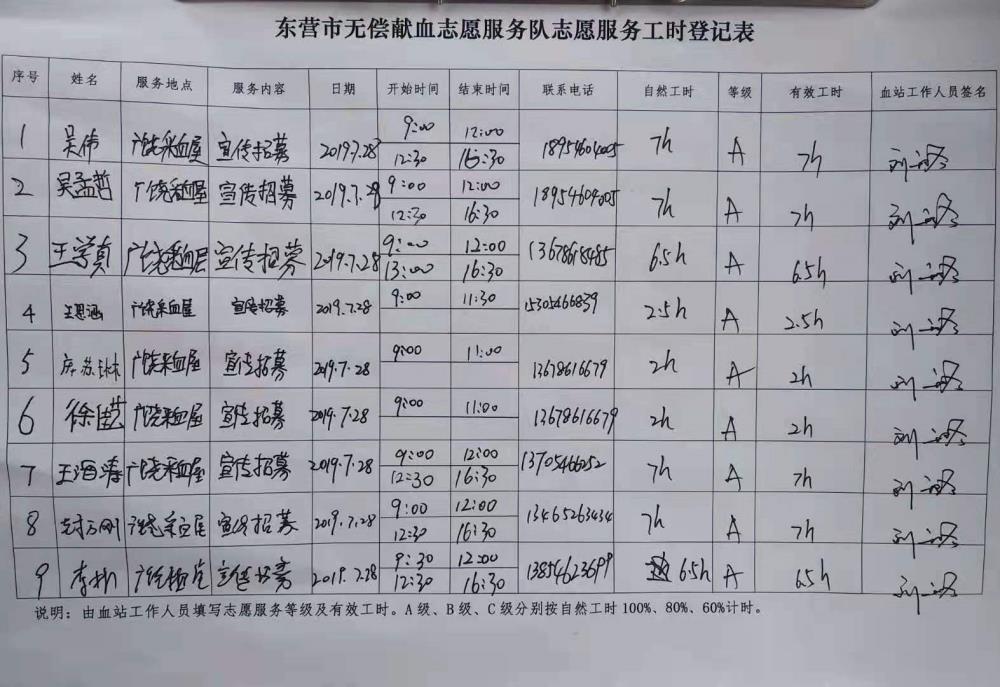 东营市无偿献血志愿服务队志愿服务工时登记表
序号 姓名 服务地点 服务内容 日期 开始时间 结束时间 联系电话 自然工时 等级 有效工时 血站工作人员签名
1 吴伟 广饶采血屋 宣传招募 2019.7.28 9:00 12:00 18954604005 7h A 7h
12:30 16:30
2 吴孟哲 广饶采血屋 宣传招募 2019.7.28 9:00 12:00 18954604005 7h A 7h
12:30 16:30
3 王学贞 广饶采血屋 宣传招募 2019.7.28 9:00 12:00 13678618485 6.5h A 6.5h
13:00 16:30
4 王思涵 广饶采血屋 宣传招募 2019.7.28 9:00 11:30 15305466839 2.5h A 2.5h
5 苏 广饶采血屋 宣传招募 2019.7.28 9:00 11:00 13678616679 2h A 2h
6 徐 广饶采血屋 宣传招募 2019.7.28 9:00 11:00 13678616679 2h A 2h
7 王海涛 广饶采血屋 宣传招募 2019.7.28 9:00 12:00 13705466252 7h A 7h
12:30 16:30
8 刚 广饶采血屋 宣传招募 2019.7.28 9:00 12:00 13465263434 7h A 7h
12:30 16:30
9 李 广饶 宣传招募 2019.7.28 9:30 12:00 13854623699 6.5h A 6.5h
12:30 16:30
说明：由血站工作人员填写志愿服务等级及有效工时。A 级、B 级、C 级分别按自然工时 100%、80%、60%计时。